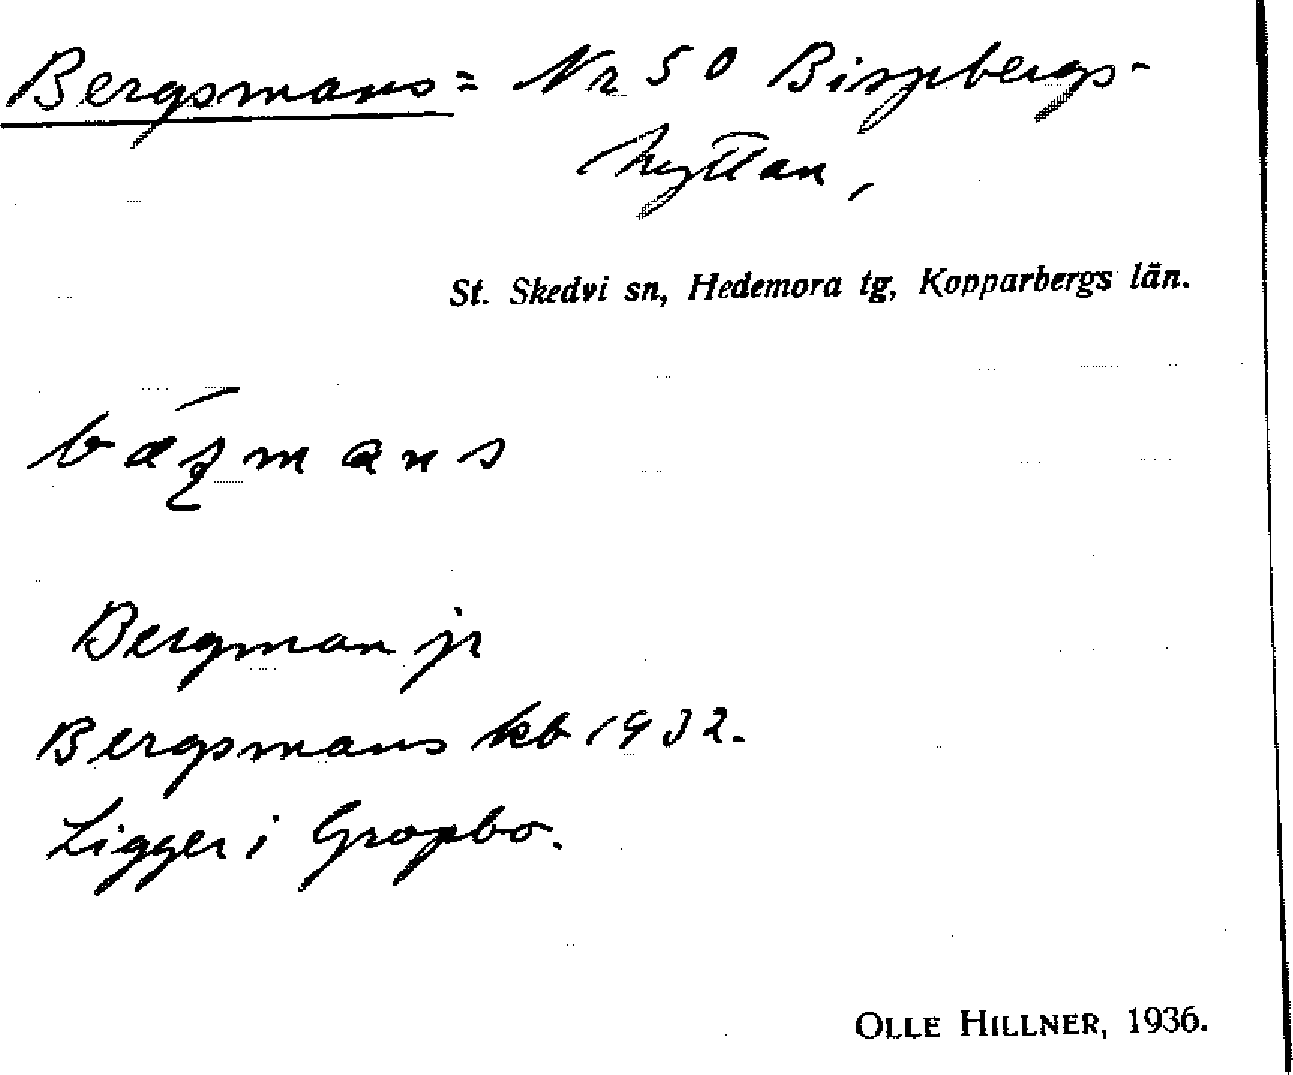 Bergsmans = Nr 50 Bispbergs-
hyttan,
St. Skedvi sn, Hedemora tg, Kopparbergs län.
bæʒmans
Bergman jr
Bergsmans kb 1932.
Ligger i Gropbo.
OLLE HILLNER, 1936.